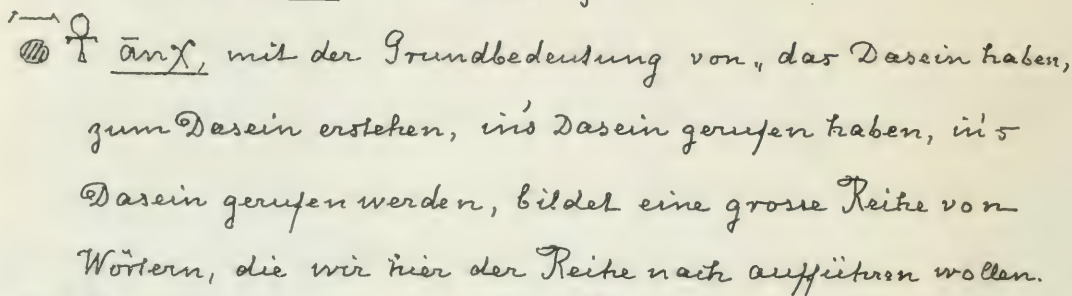 𓋹 ānχ, mit der Grundbedeutung von „das Dasein haben,
zum Dasein erstehen, in's Dasein gerufen haben, in's
Dasein gerufen werden, bildet eine grosse Reihe von
Wörtern, die wir hier der Reihe nach aufführen wollen.